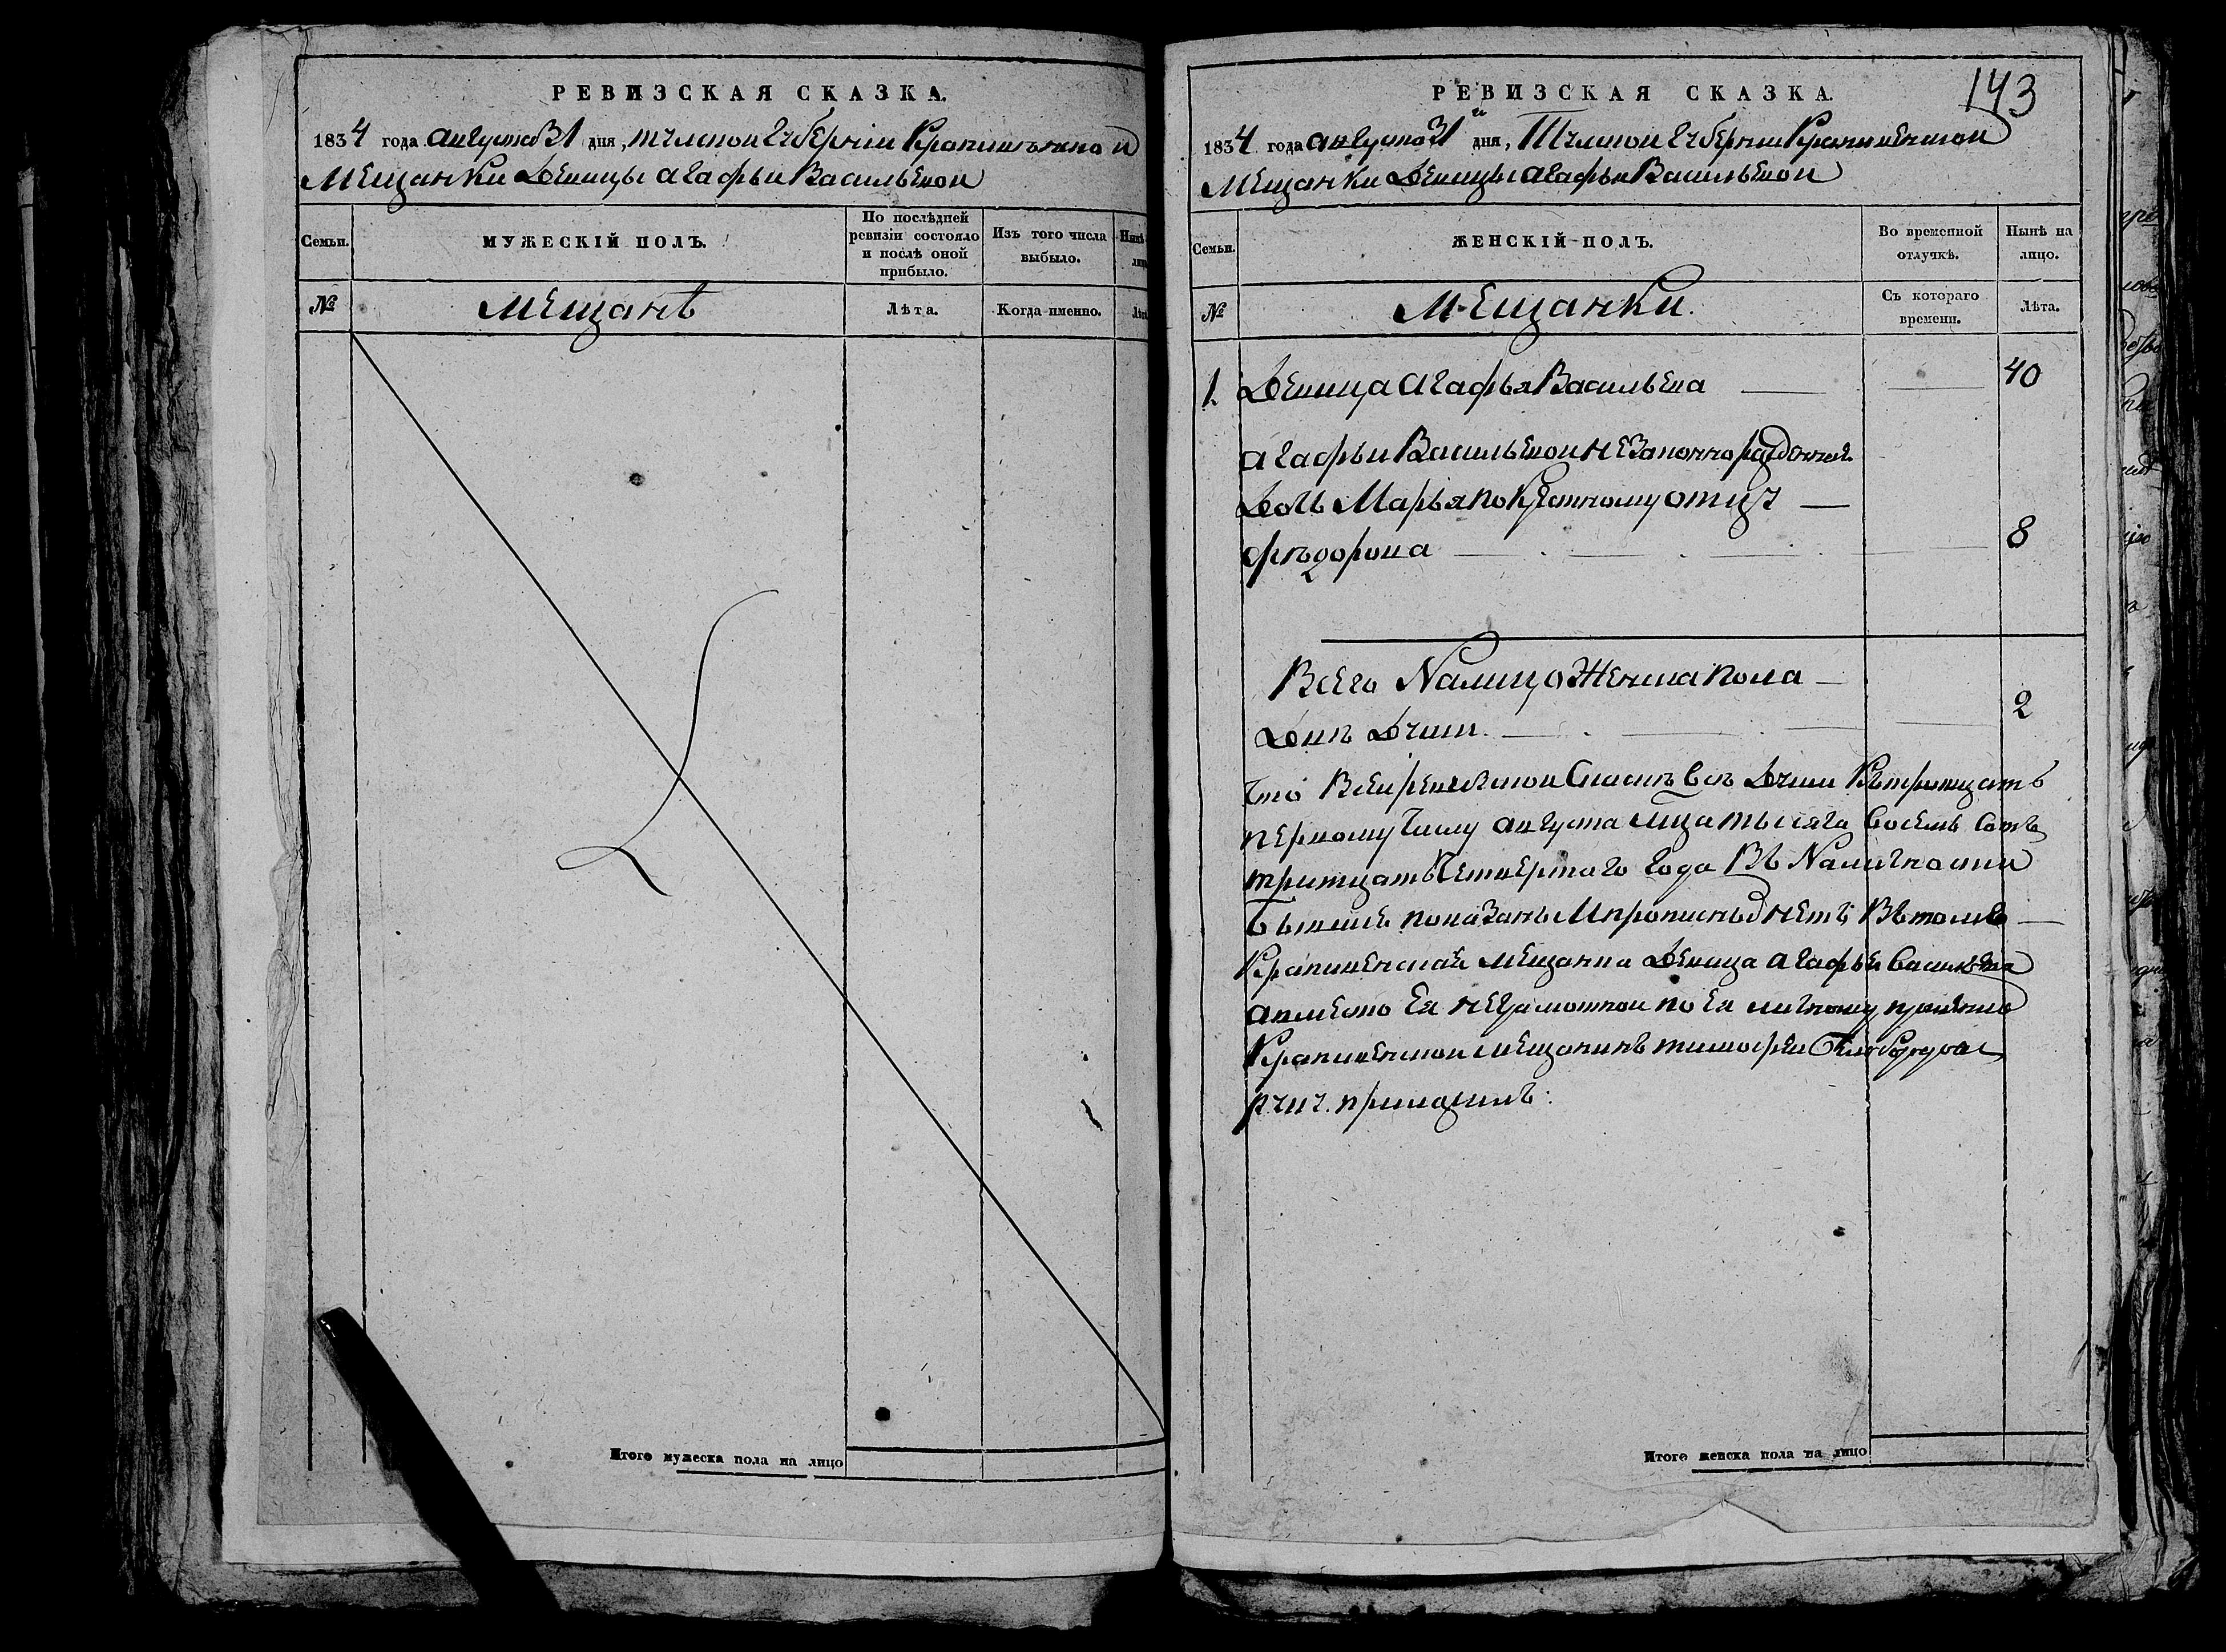 РЕВИЗСКАЯ СКАЗКА.
1834 года августа 31 дня, тульской губернiи Крапивенской
мещанки девицы агафьи Васильевой
Семьи.
МУЖЕСКIЙ ПОЛЪ.
По послѣдней ревизiи состояло и послѣ оной прибыло.
Изъ того числа выбыло.
№
мещанѣ
Лѣта.
Когда именно.
Итого мужеска пола на лицо
143
РЕВИЗСКАЯ СКАЗКА.
1834 года августа 31 дня, Тульской губернiи Крапивенской
мещанки девицы агафьи Васильевой
Семьи.
ЖЕНСКIЙ ПОЛЪ.
Во временной отлучкѣ.
Нынѣ на лицо.
№
Мещанки.
Съ котораго времени.
Лѣта.
1. Девица агафья Васильева 40
агафьи Васильевой незаконно рожденная
дочь Марья по крестному отцу
фѣдорова 8
Всего Налицо Женска пола
двѣ души 2
что Всей ревизской Сказкѣ всѣ души Къ тритцать
первому числу августа мца тысяча восемь сотъ
тритцать Четвертого года Въ Наличности
бывшие показаны И прописныхъ нетъ Въ томъ
Крапивенская мещанка девица агафья васильева
а вместо ея неграмотной по ея личному прошенiю
Крапивенской мещанинъ тимофей
руку приложилъ:
Итого женска пола на лицо